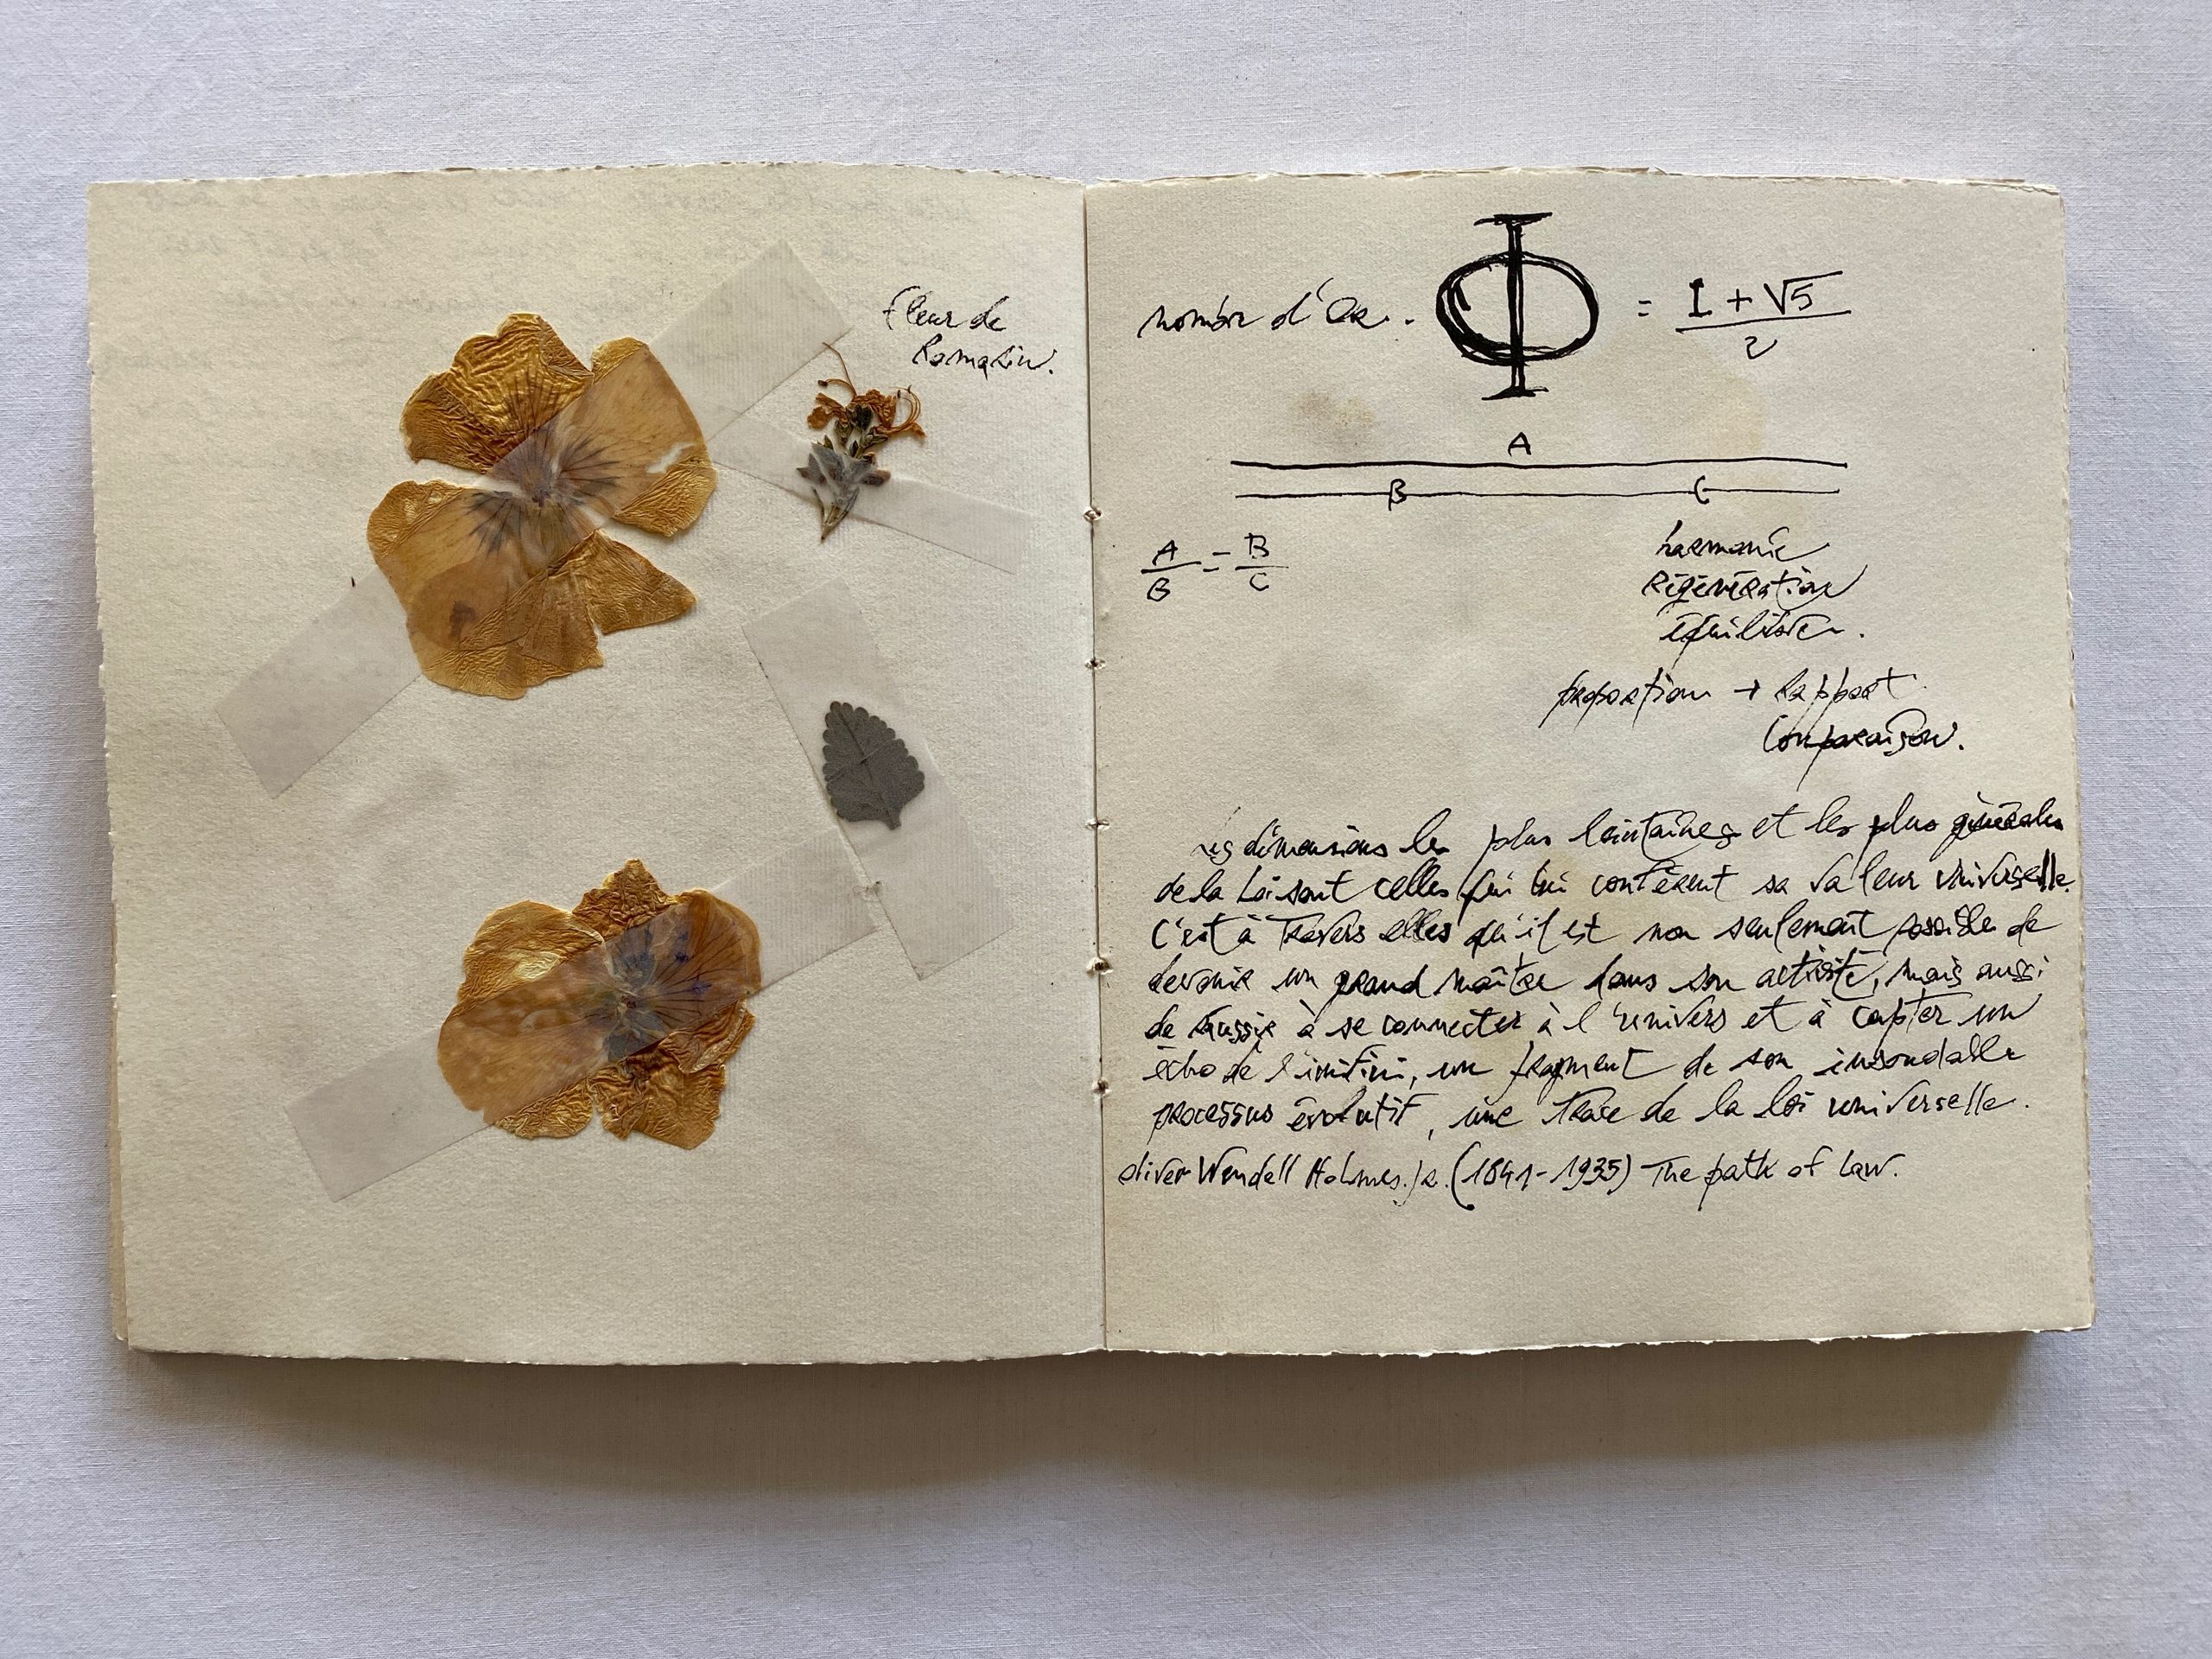 fleur de
Romarin.
nombre d'Or. Φ = 1 + √5
2
A
B C
A = B
B C
harmonie
Régénération
équilibre.
proportion → Rapport
Comparaison.
dimensions les plus lointaines et les plus générales
de la Loi sont celles qui lui confèrent sa valeur universelle.
C'est à Travers elles qu'il est non seulement possible de
devenir un grand maître dans son activité, mais aussi
de Réussir à se connecter à l'univers et à capter un
écho de l'infini, un fragment de son insondable
processus évolutif, une Trace de la loi universelle.
oliver Wendell Holmes. Jr. (1841-1935) The path of Law.